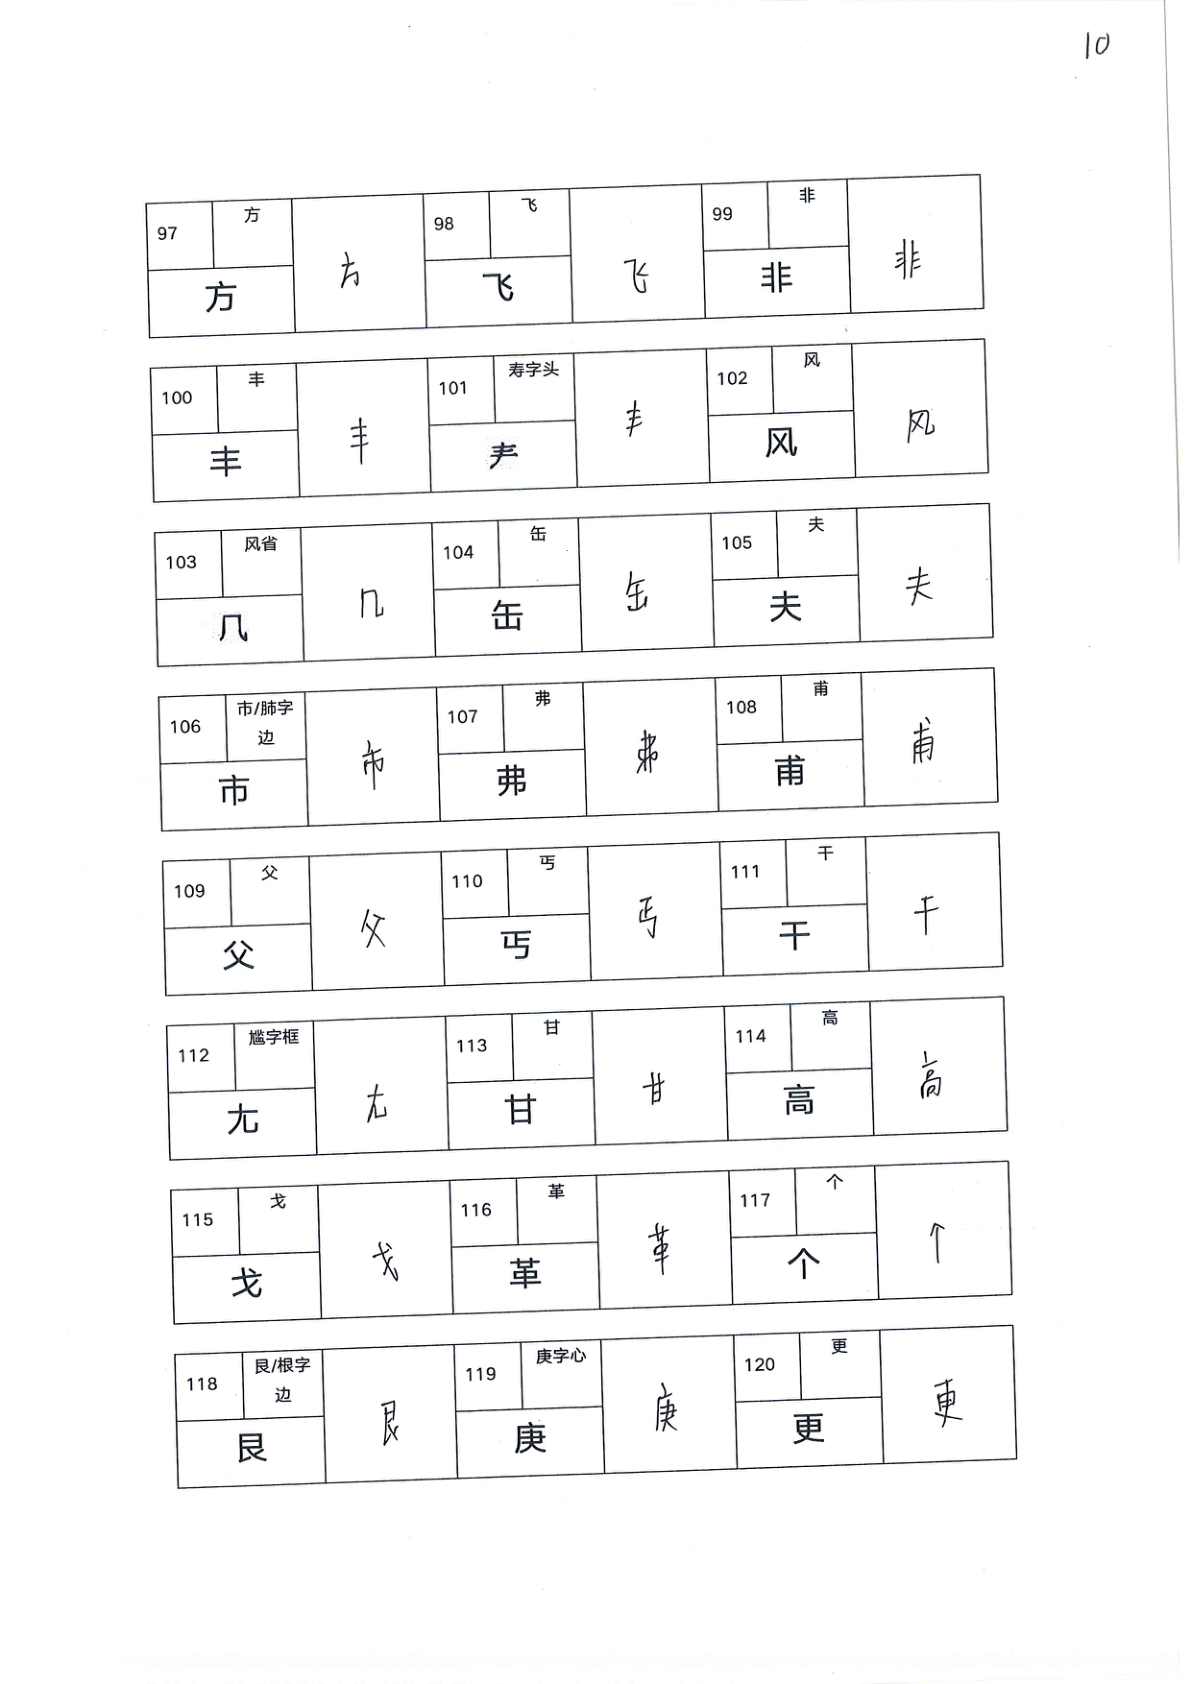 10
97 方 方 方 98 飞 飞 飞 99 非 非 非
100 丰 丰 丰 101 寿字头 龵 丰 102 风 风 风
103 风省 几 几 104 缶 缶 缶 105 夫 夫 夫
106 市/肺字边 巿 巿 107 弗 弗 弗 108 甫 甫 甫
109 父 父 父 110 丐 丐 丐 111 干 干 干
112 尴字框 尢 尢 113 甘 甘 甘 114 高 高 高
115 戈 戈 戈 116 革 革 革 117 个 个 个
118 艮/根字边 艮 艮 119 庚字心 庚 庚 120 更 更 更